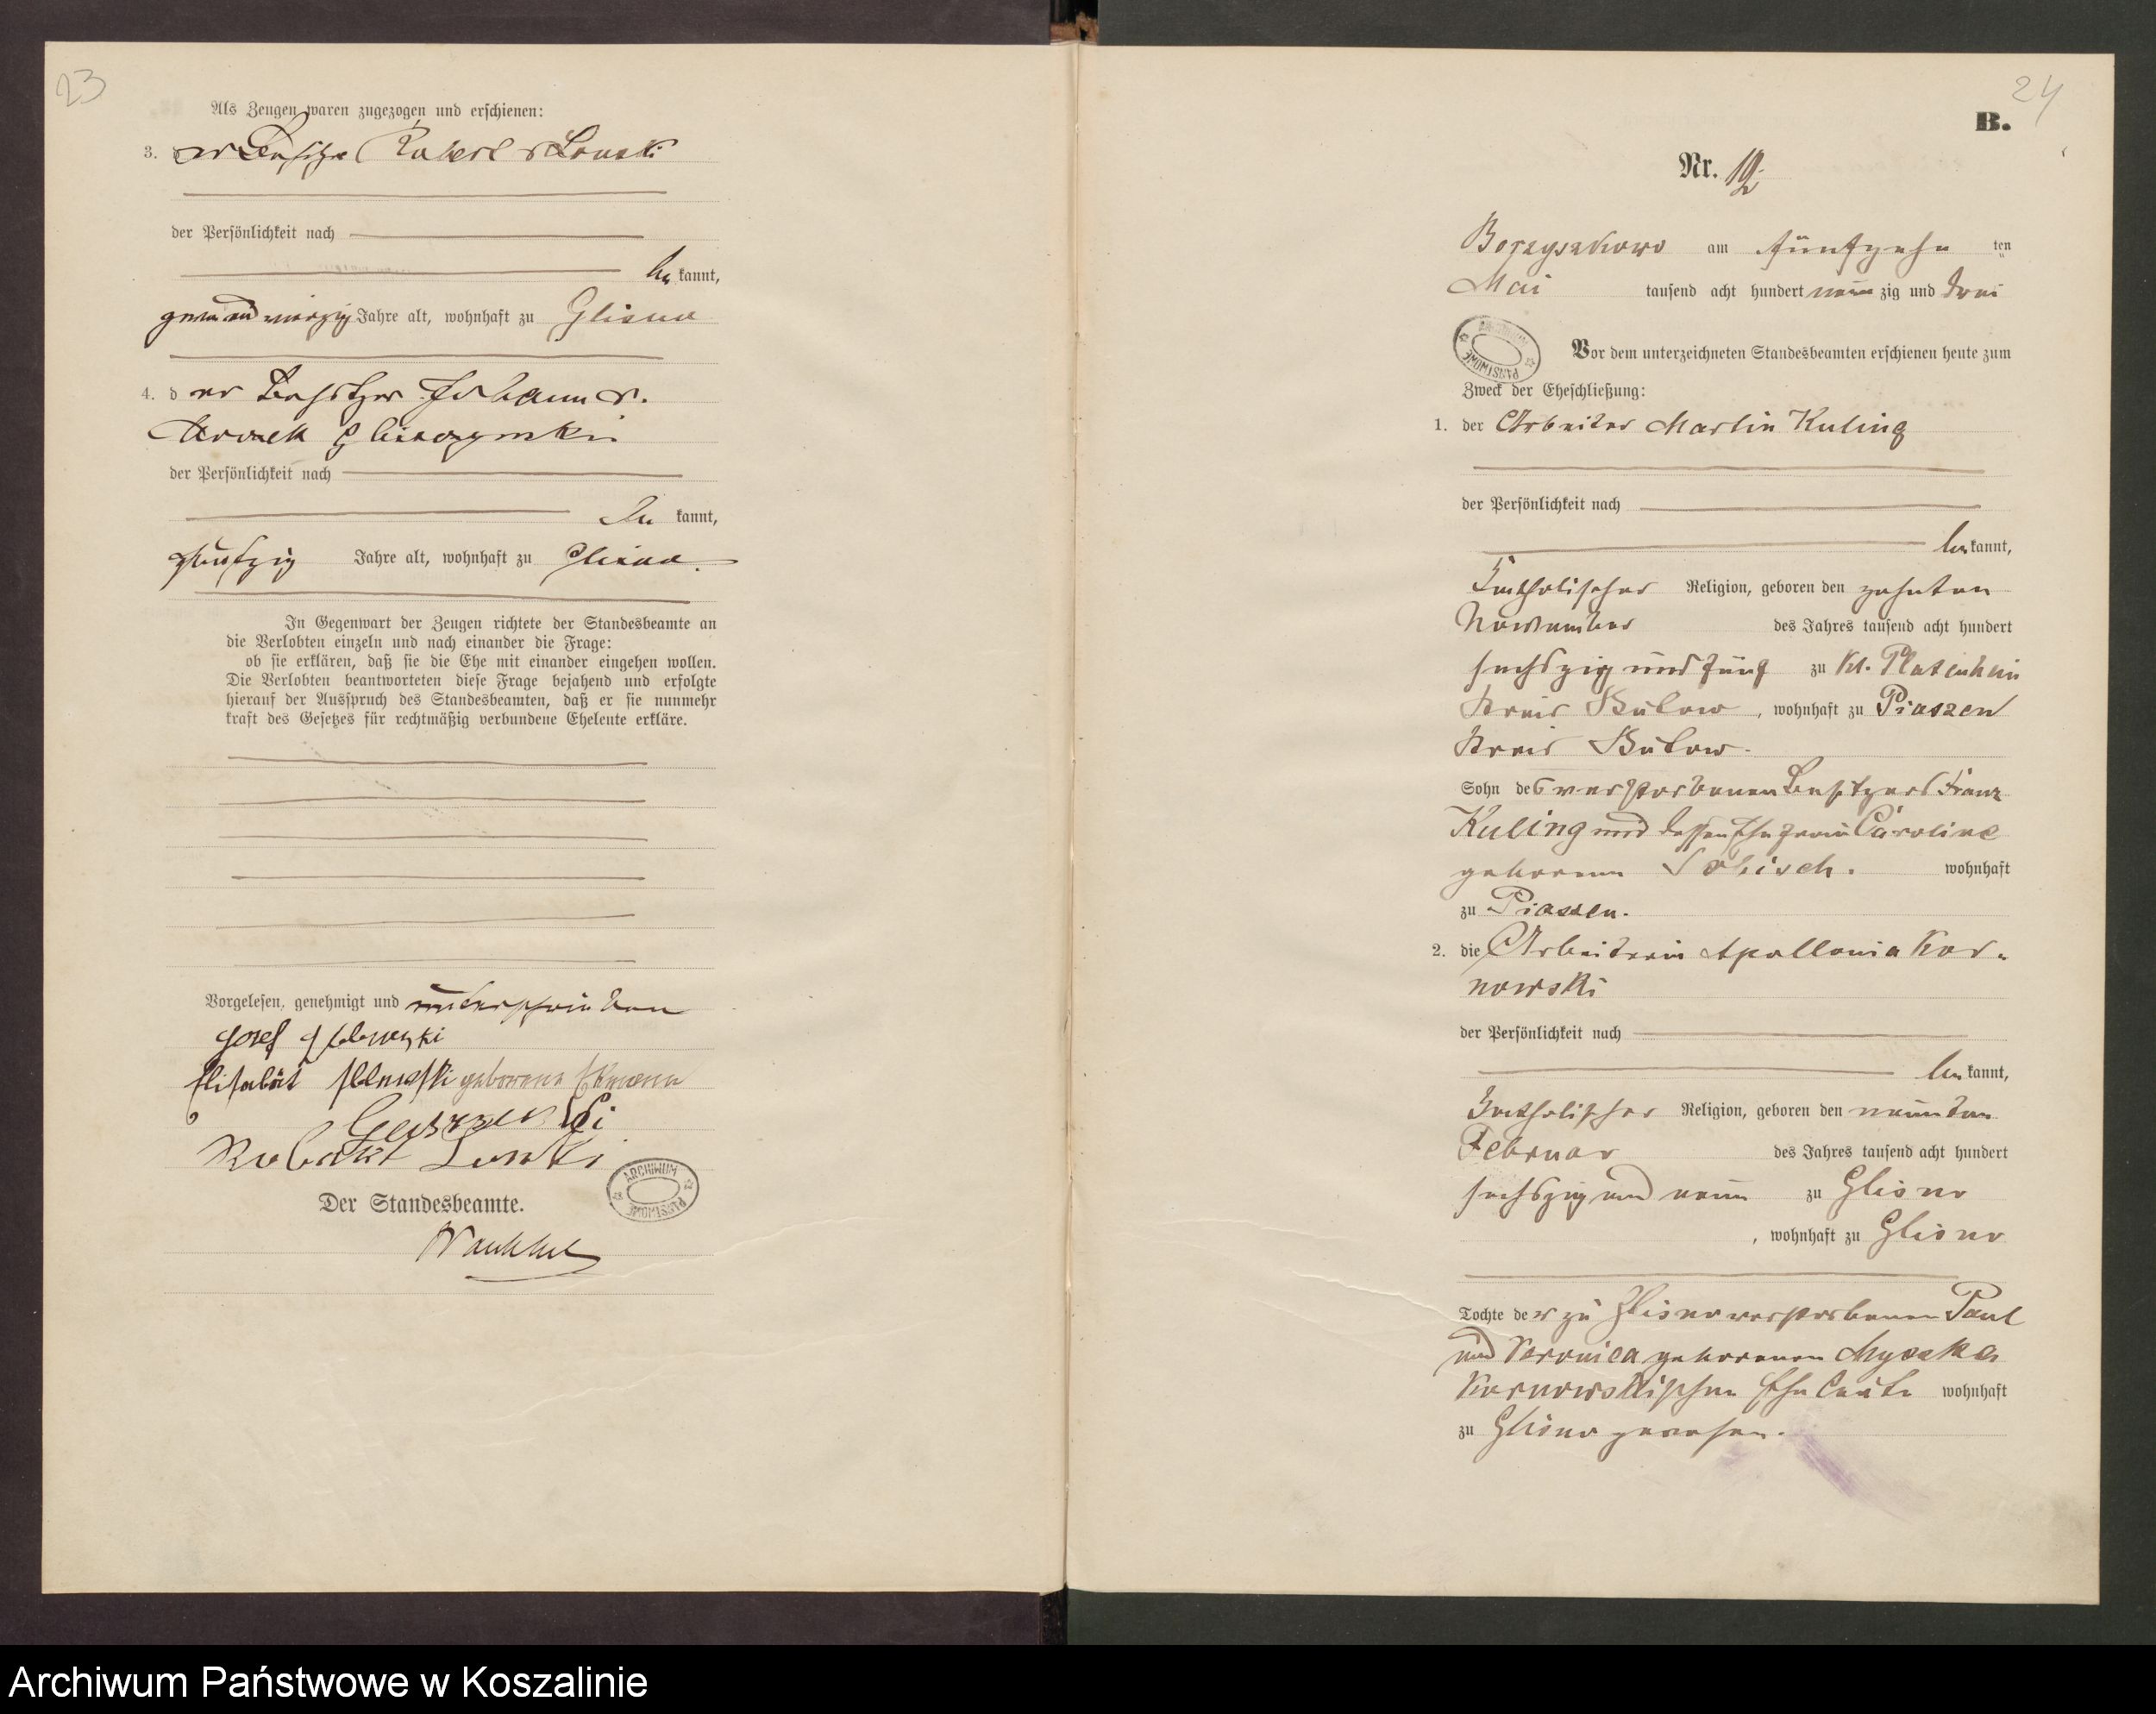 23
Als Zeugen waren zugezogen und erschienen:
3. der Besitzer Robert v Lonski
der Persönlichkeit nach
be kannt,
Jahre alt, wohnhaft zu Glisno
4. d er Besitzer Johann v.
Gliszczynski
der Persönlichkeit nach
be kannt,
fünfzig Jahre alt, wohnhaft zu Glisno.
In Gegenwart der Zeugen richtete der Standesbeamte an
die Verlobten einzeln und nach einander die Frage:
ob sie erklären, daß sie die Ehe mit einander eingehen wollen.
Die Verlobten beantworteten diese Frage bejahend und erfolgte
hierauf der Ausspruch des Standesbeamten, daß er sie nunmehr
kraft des Gesetzes für rechtmäßig verbundene Eheleute erkläre.
Vorgelesen, genehmigt und unterschrieben
Josef
Elisabet geborene
Robert Lonski
ARCHIWUM PAŃSTWOWE
Der Standesbeamte.
24
B.
Nr. 12
Borzyszkowo am fünfzehn ten
Mai tausend acht hundert neun zig und drei
ARCHIWUM PAŃSTWOWE
Vor dem unterzeichneten Standesbeamten erschienen heute zum
Zweck der Eheschließung:
1. der Arbeiter Martin Kuling
der Persönlichkeit nach
be kannt,
katholischer Religion, geboren den zehnten
November des Jahres tausend acht hundert
sechszig und fünf zu Kl. Platenheim
Kreis Bütow, wohnhaft zu Piaszen
Kreis Bütow.
Sohn des verstorbenen Besitzers Franz
Kuling und dessen Ehefrau Caroline
geborenen wohnhaft
zu Piaszen.
2. die Arbeiterin Apollonia Kor-
nowski
der Persönlichkeit nach
be kannt,
katholischer Religion, geboren den neunten
Februar des Jahres tausend acht hundert
sechszig und neun zu Glisno
, wohnhaft zu Glisno
Tochte der zu Glisno verstorbenen Paul
und Veronica geborenen Myszka
Kornowskischen Eheleute wohnhaft
zu Glisno gewesen.
Archiwum Państwowe w Koszalinie